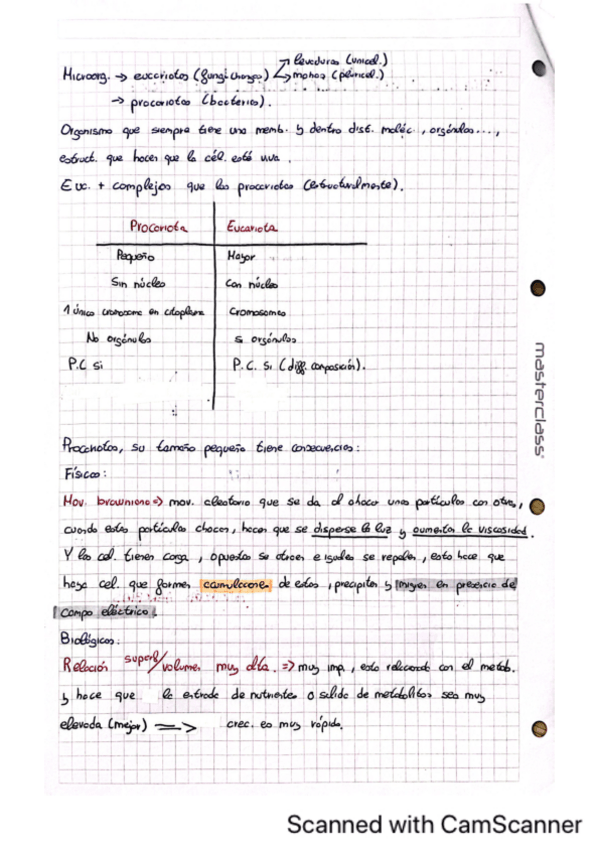 levaduras (unicel.)
Microorg. → eucariotas (fungi hongos) mohos (pluricel.)
→ procariotas (bacterias).
Organismo que siempre tiene una memb. y dentro dist. moléc., orgánulos...,
estruct. que hacen que la cél. esté viva.
Euc. + complejas que las procariotas (estructuralmente).
Procariota Eucariota
Pequeño Mayor
Sin núcleo Con núcleo
1 único cromosoma en citoplasma Cromosomas
No orgánulos Sí orgánulos
P.C Si P.C. Si (diff. composición).
Procariotas, su tamaño pequeño tiene consecuencias:
Físicas:
Mov. browniano => mov. aleatorio que se da al chocar unas partículas con otras,
cuando estas partículas chocan, hacen que se disperse la luz y aumenta la viscosidad.
Y las cél. tienen carga, opuestas se atraen e iguales se repelen, esto hace que
haya cél. que formen de estas, precipiten y migren en presencia de
campo eléctrico.
Biológicas:
Relación superf/volumen muy alta. => muy imp., esto relacionado con el metab.
y hace que la entrada de nutrientes o salida de metabolitos sea muy
elevada (mejor) => crec. es muy rápido.
masterclass
Scanned with CamScanner